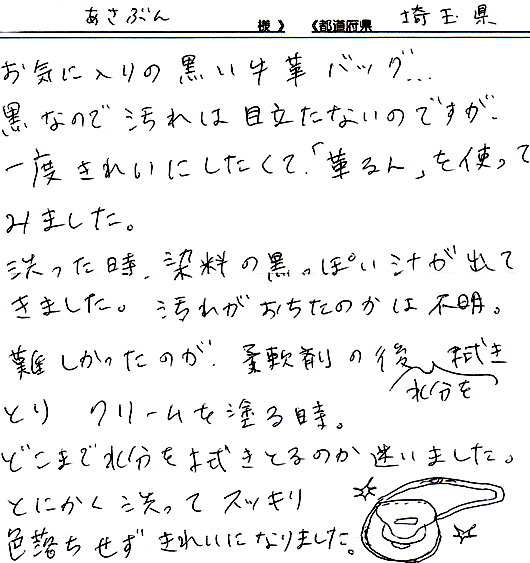 あさぶん 様 》 《都道府県 埼玉県
お気に入りの黒い牛革バッグ…
黒なので汚れは目立たないのですが、
一度きれいにしたくて、「革るん」を使って
みました。
洗った時、染料の黒っぽい汁が出て
きました。汚れがおちたのかは不明。
難しかったのが、柔軟剤の後水分を拭き
とりクリームを塗る時。
どこまで水分を拭きとるのか迷いました。
とにかく洗ってスッキリ
色落ちせずきれいになりました。